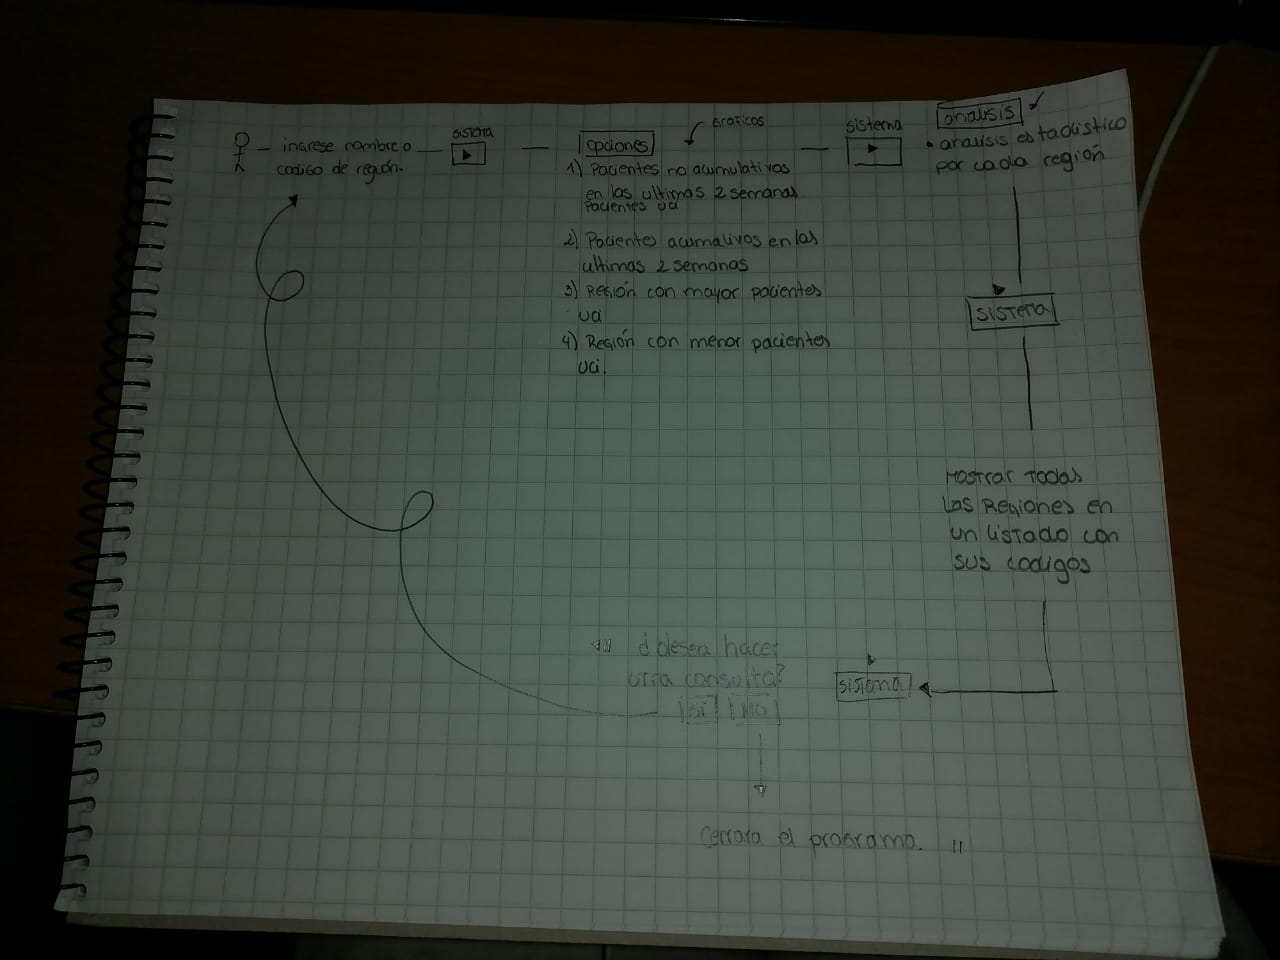 ingrese nombre o
codigo de region.
sistema
opciones
Graficos
1) Pacientes no acumulativos
en las ultimas 2 semanas
Pacientes uci
2) Pacientes acumalivos en las
ultimas 2 semanas
3) Región con mayor pacientes
uci
4) Región con menor pacientes
uci.
sistema
analisis
• analisis estadistico
por cada región
sistema
Mostrar todas
Las Regiones en
un listado con
sus codigos
sistema
¿desea hacer
una consulta?
si no
Cerrara el programa.